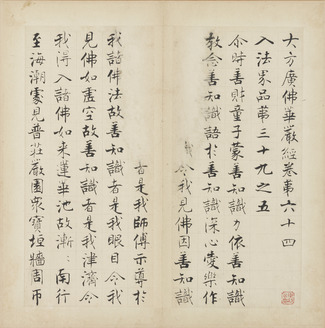 大方廣佛華嚴經卷第六十四
入法界品第三十九之五
尒時善財童子蒙善知識力依善知識
教念善知識語於善知識深心愛樂作
是念我因善知識
令我見佛因善知識
令我見法善知識者是我師傅示導於
我諸佛法故善知識者是我眼目令我
見佛如虛空故善知識者是我津濟令
我得入諸佛如來蓮華池故漸漸南行
至海潮處見普莊嚴園眾寶垣牆周帀